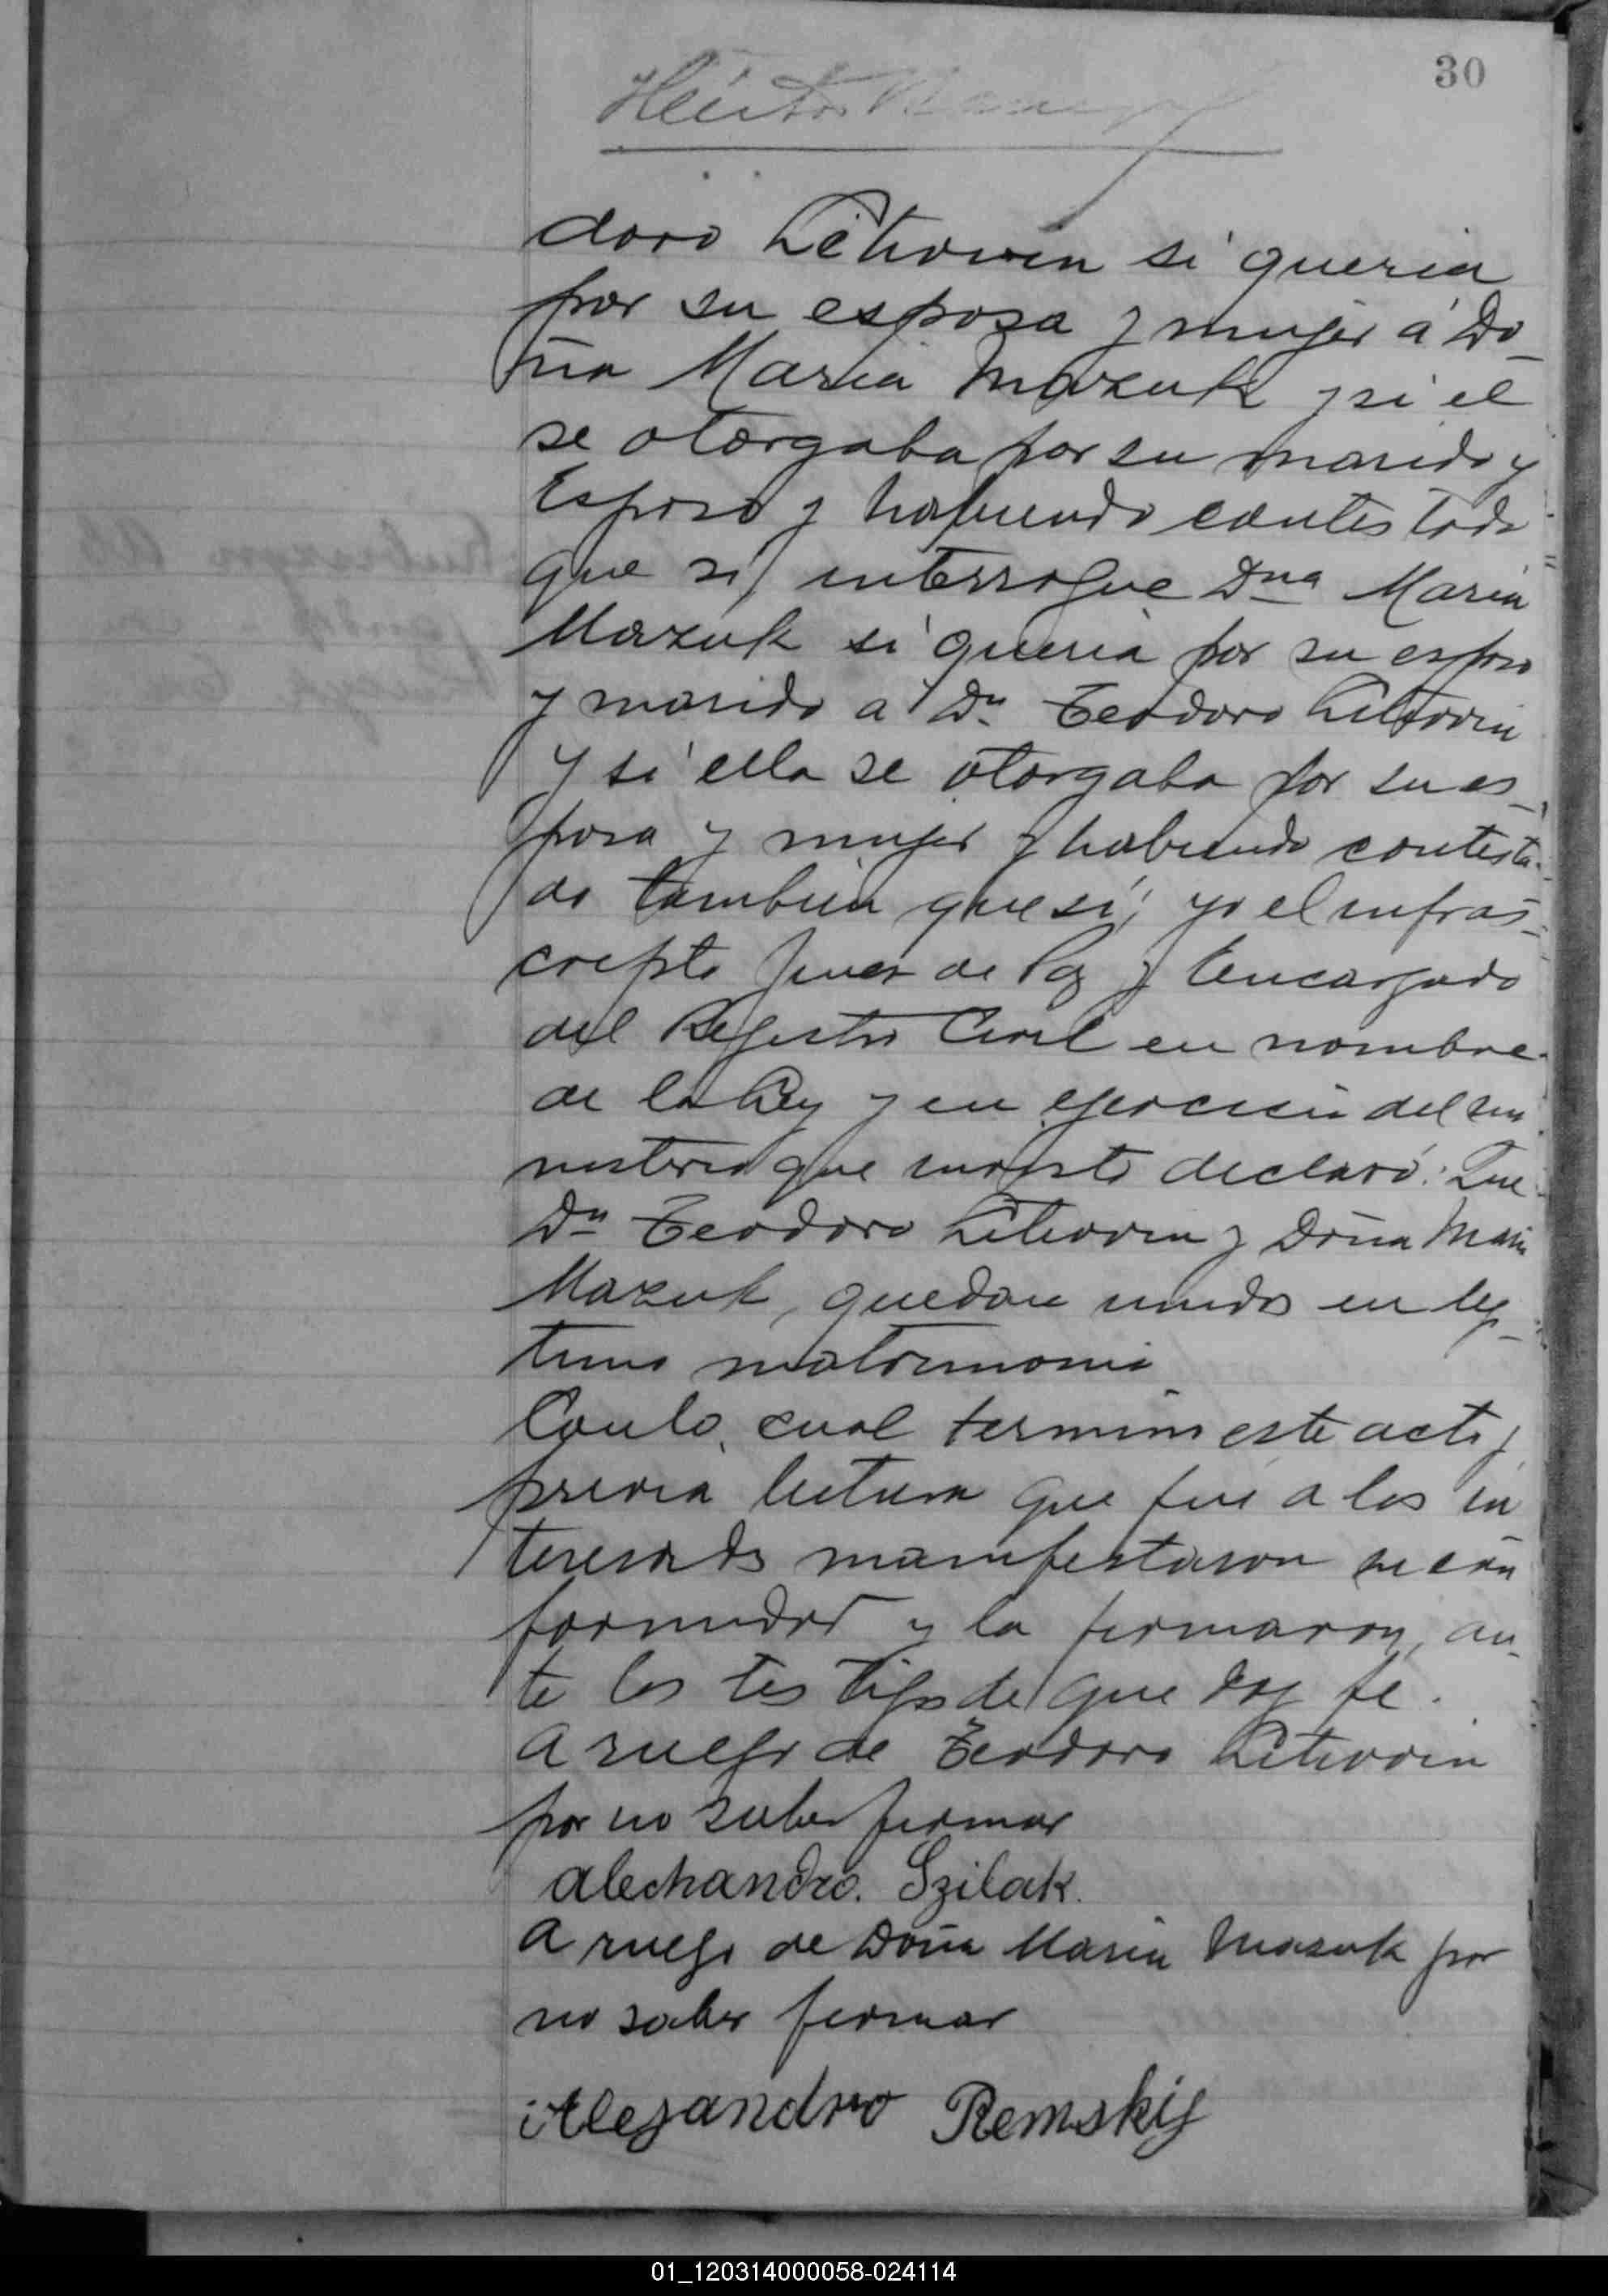 30
Héctor
doro Litrovin si queria
por su esposa y mujer á Do-
ña Maria Mazuk y si el
se otorgaba por su marido y
Esposo y habiendo contestado
que si, interrogue Dña Maria
Mazuk si queria por su esposo
y marido a Dn Teodoro Litrovin
y si ella se otorgaba por su es-
posa y mujer y habiendo contesta-
do tambien que si; yo el infras-
cripto Juez de Paz y Encargado
del Registro Civil en nombre
de la Ley y en ejercicio del mi
nisterio que invisto declaró: Que
Dn Teodoro Litrovin y Doña Maria
Mazuk, quedan unidos en leg-
timo matrimonio
Con lo cual termino este acto y
previa lectura que fué a los in
teresados manifestaron su con
formidad y la firmaron, an-
te los testigos de que doy fe.
A ruego de Teodoro Litrovin
por no saber firmar
Alechandro. Szilak.
A ruego de Doña Maria Mazuk por
no saber firmar
Alejandro Remskij
01_120314000058-024114